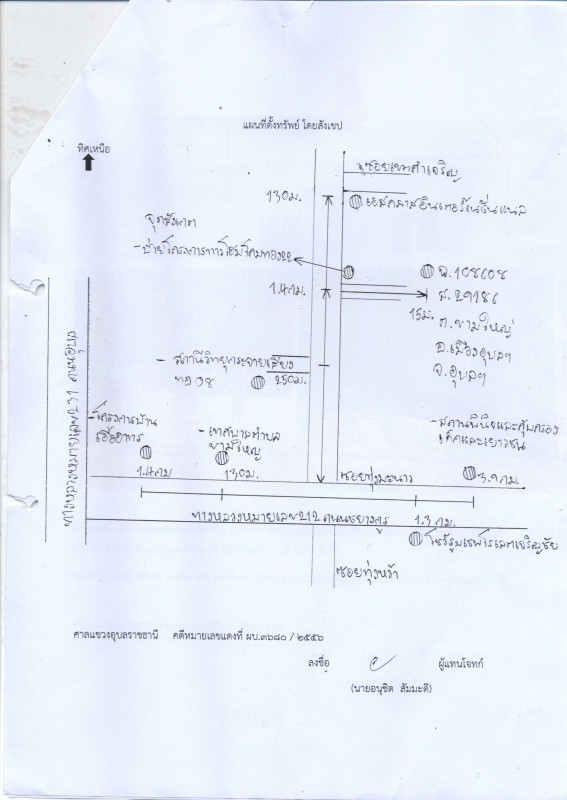 แผนที่ตั้งทรัพย์ โดยสังเขป
ทิศเหนือ
ซอยเขตคำเจริญ
130ม.
เอสคลาสอินเตอร์เนชั่นแนล
จุดสังเกต
-ป้ายโครงการทาวโฮมโคมทอง22
ฉ.108608
1.4กม.
ส.29186
15ม.
ต.ขามใหญ่
อ.เมืองอุบลฯ
จ.อุบลฯ
- สถานีวิทยุกระจายเสียง
ทอ08
250ม.
ทางหลวงหมายเลข231 ถนนอุบล
-โครงการบ้าน
เอื้ออาทร
1.4กม
-เทศบาลตำบล
ขามใหญ่
130ม.
-สถานพินิจและคุ้มครอง
เด็กและเยาวชน
ซอยทุ่งมะนาว
3.9กม.
ทางหลวงหมายเลข212 ถนนชยางกูร
1.3 กม.
โชว์รูมเชฟโรเลตเจริญชัย
ซอยทุ่งหว้า
ศาลแขวงอุบลราชธานี คดีหมายเลขแดงที่ ผบ.๓๖๘๐ / ๒๕๕๖
ลงชื่อ ผู้แทนโจทก์
(นายอนุชิต สัมมะดี)